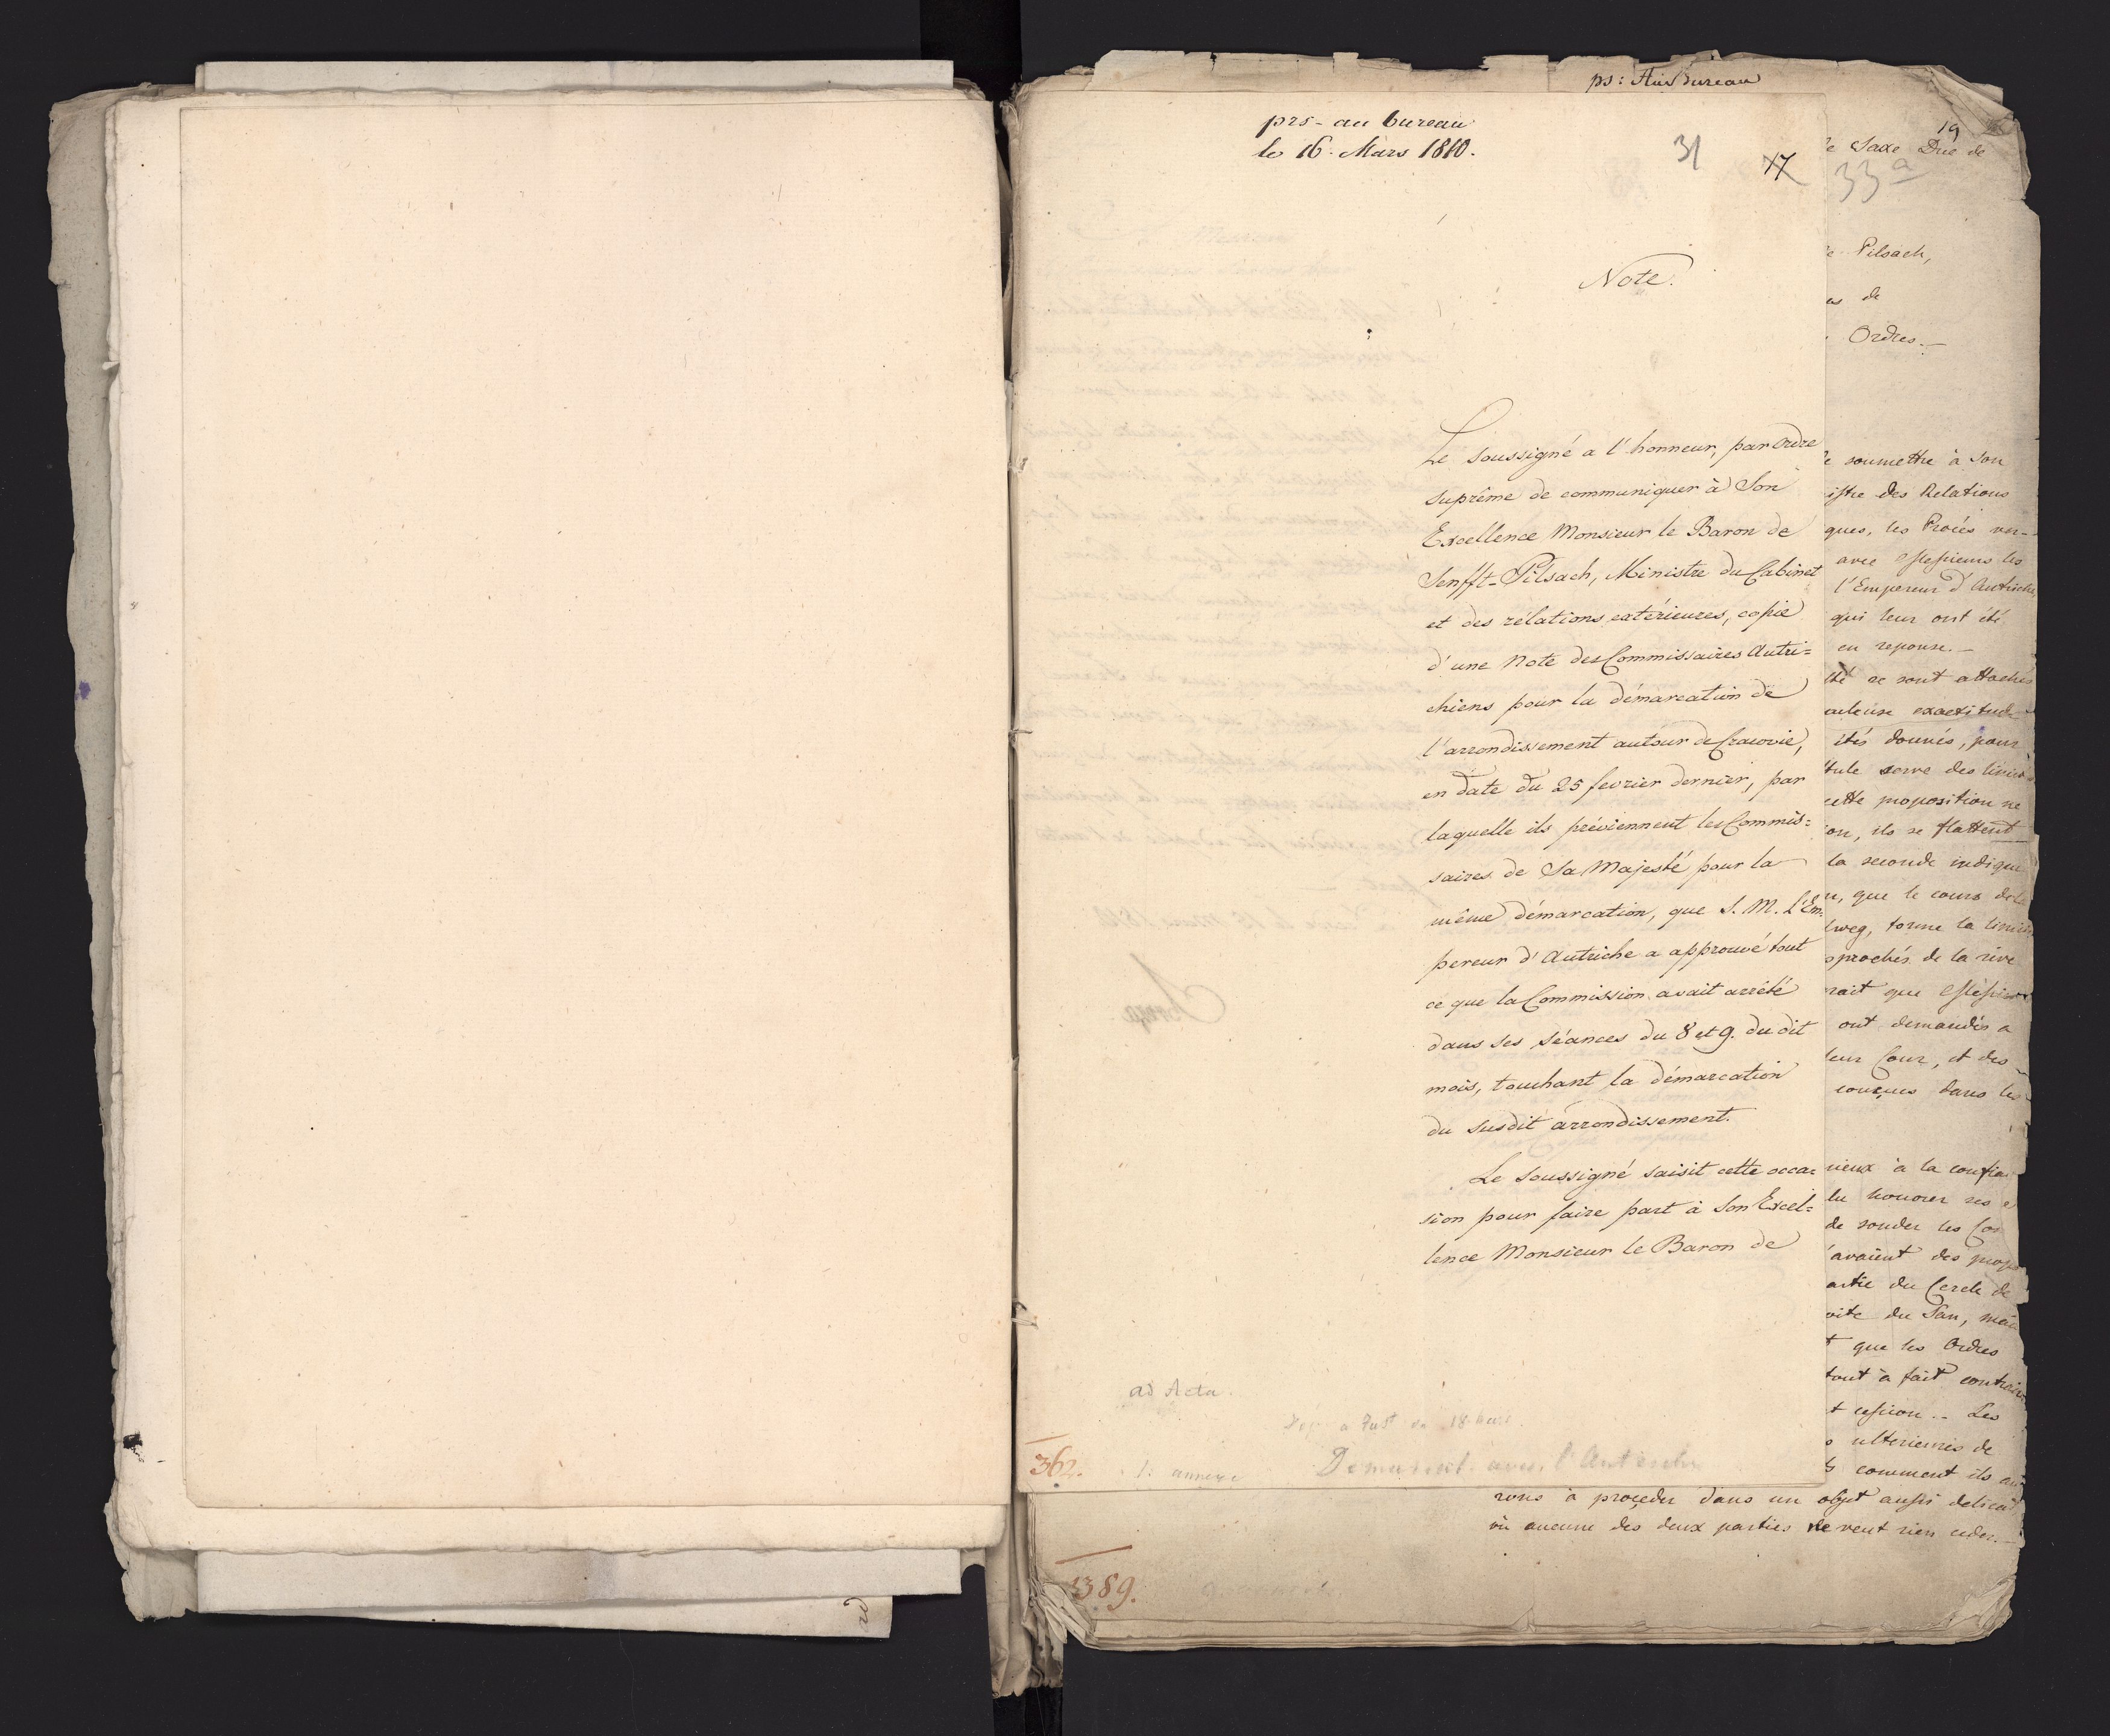 prs - au bureau
le 16. Mars 1810.
31
17
Note.
Le soussigné a l'honneur, par Ordre
suprême de communiquer à Son
Excellence Monsieur le Baron de
Senfft-Pilsach, Ministre du Cabinet
et des rélations extérieures, copie
d'une Note des Commissaires Autri=
chiens pour la démarcation de
l'arrondissement autour de Cracovie,
en date du 25 fevrier dernier, par
laquelle ils préviennent les Commis=
saires de Sa Majesté pour la
même démarcation, que S. M. L'Em=
pereur d'Autriche a approuvé tout
ce que la Commission avait arrêté
dans ses séances du 8 et 9. du dit
mois, touchant la démarcation
du susdit arrondissement.
Le soussigné saisit cette occa=
sion pour faire part à Son Excel=
lence Monsieur le Baron de
ad Acta.
362.
1. annexe
ps: au bureau
19
33a
de Saxe Duc de
Pilsach,
de
Ordres.-
soumettre à Son
des Relations
ques, les Procés ver-
avec Messieurs les
l'Empereur d'Autriche,
qui leur ont été
en reponse.-
se sont attachés
exactitude
étés donnés, pour
serve des limites
cette proposition ne
ils se flattent
la seconde indique
que le cours de la
weg, forme la limite
de la rive
que Messieurs
ont demandés a
leur Cour, et des
conçues dans les
à la confian
honorer ses
de sonder les Com
avaient des propo
du Cercle de
du San, mais
que les Ordres
tout à fait contraires
cession.- Les
ulterieures de
comment ils au-
rons à proçeder dans un objet aussi delicat
où aucune des deux parties ne veut rien ceder.-
389.